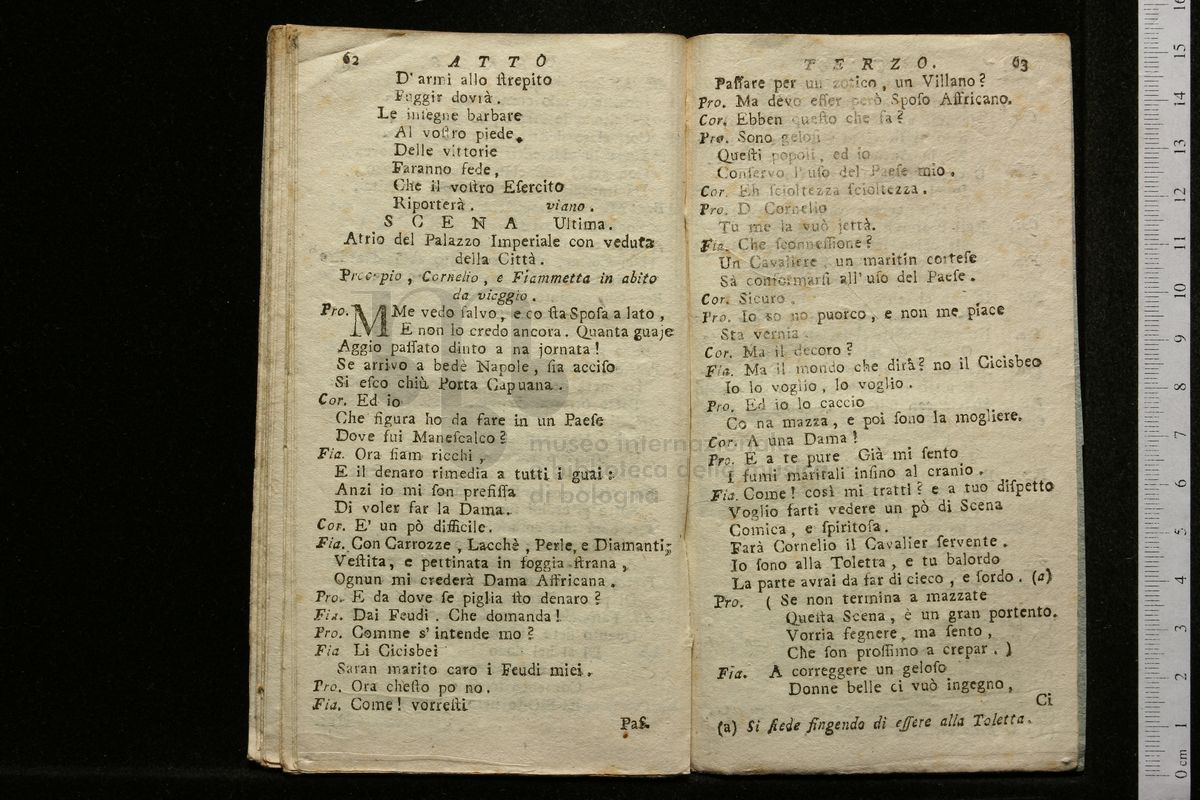 62 ATTO
D' armi allo ſtrepito
Fuggir dovrà.
Le inſegne barbare
Al voſtro piede,
Delle vittorie
Faranno fede,
Che il voſtro Eſercito
Riporterà. viano.
SCENA Ultima.
Atrio del Palazzo Imperiale con veduta
della Città.
Procopio, Cornelio, e Fiammetta in abito
da vieggio.
Pro. MMe vedo ſalvo, e co ſta Spoſa a lato,
E non lo credo ancora. Quanta guaje
Aggio paſſato dinto a na jornata!
Se arrivo a bedè Napole, ſia acciſo
Si eſco chiù Porta Capuana.
Cor. Ed io
Che figura ho da fare in un Paeſe
Dove fui Maneſcalco?
Fia. Ora ſiam ricchi,
E il denaro rimedia a tutti i guai:
Anzi io mi ſon prefiſſa
Di voler far la Dama.
Cor. E' un pò difficile.
Fia. Con Carrozze, Lacchè, Perle, e Diamanti;
Veſtita, e pettinata in foggia ſtrana,
Ognun mi crederà Dama Affricana.
Pro. E da dove ſe piglia ſto denaro?
Fia. Dai Feudi. Che domanda!
Pro. Comme s' intende mo?
Fia Li Cicisbei
Saran marito caro i Feudi miei.
Pro. Ora cheſto po no.
Fia. Come! vorreſti
Paſ.
TERZO. 63
Paſſare per un zotico, un Villano?
Pro. Ma devo eſſer però Spoſo Affricano.
Cor. Ebben queſto che fa?
Pro. Sono geloſi
Queſti popoli, ed io
Conſervo l'uſo del Paeſe mio.
Cor. Eh ſcioltezza ſcioltezza.
Pro. D Cornelio
Tu me la vuò jettà.
Fia. Che ſconneſſione?
Un Cavaliere, un maritin corteſe
Sà conformarſi all' uſo del Paeſe.
Cor. Sicuro.
Pro. Io so no puorco, e non me piace
Sta vernia.
Cor. Ma il decoro?
Fia. Ma il mondo che dirà? no il Cicisbeo
Io lo voglio, lo voglio.
Pro. Ed io lo caccio
Co na mazza, e poi ſono la mogliere.
Cor. A una Dama!
Pro. E a te pure Già mi ſento
I fumi maritali inſino al cranio.
Fia. Come! così mi tratti? e a tuo diſpetto
Voglio farti vedere un pò di Scena
Comica, e ſpiritoſa.
Farà Cornelio il Cavalier ſervente.
Io ſono alla Toletta, e tu balordo
La parte avrai da far di cieco, e ſordo. (a)
Pro. ( Se non termina a mazzate
Queſta Scena, è un gran portento.
Vorria fegnere, ma ſento,
Che ſon proſſimo a crepar. )
Fia. A correggere un geloſo
Donne belle ci vuò ingegno,
Ci
(a) Si ſiede fingendo di eſſere alla Toletta.
museo internazionale
e biblioteca della musica
di bologna
0 cm 1 2 3 4 5 6 7 8 9 10 11 12 13 14 15 16